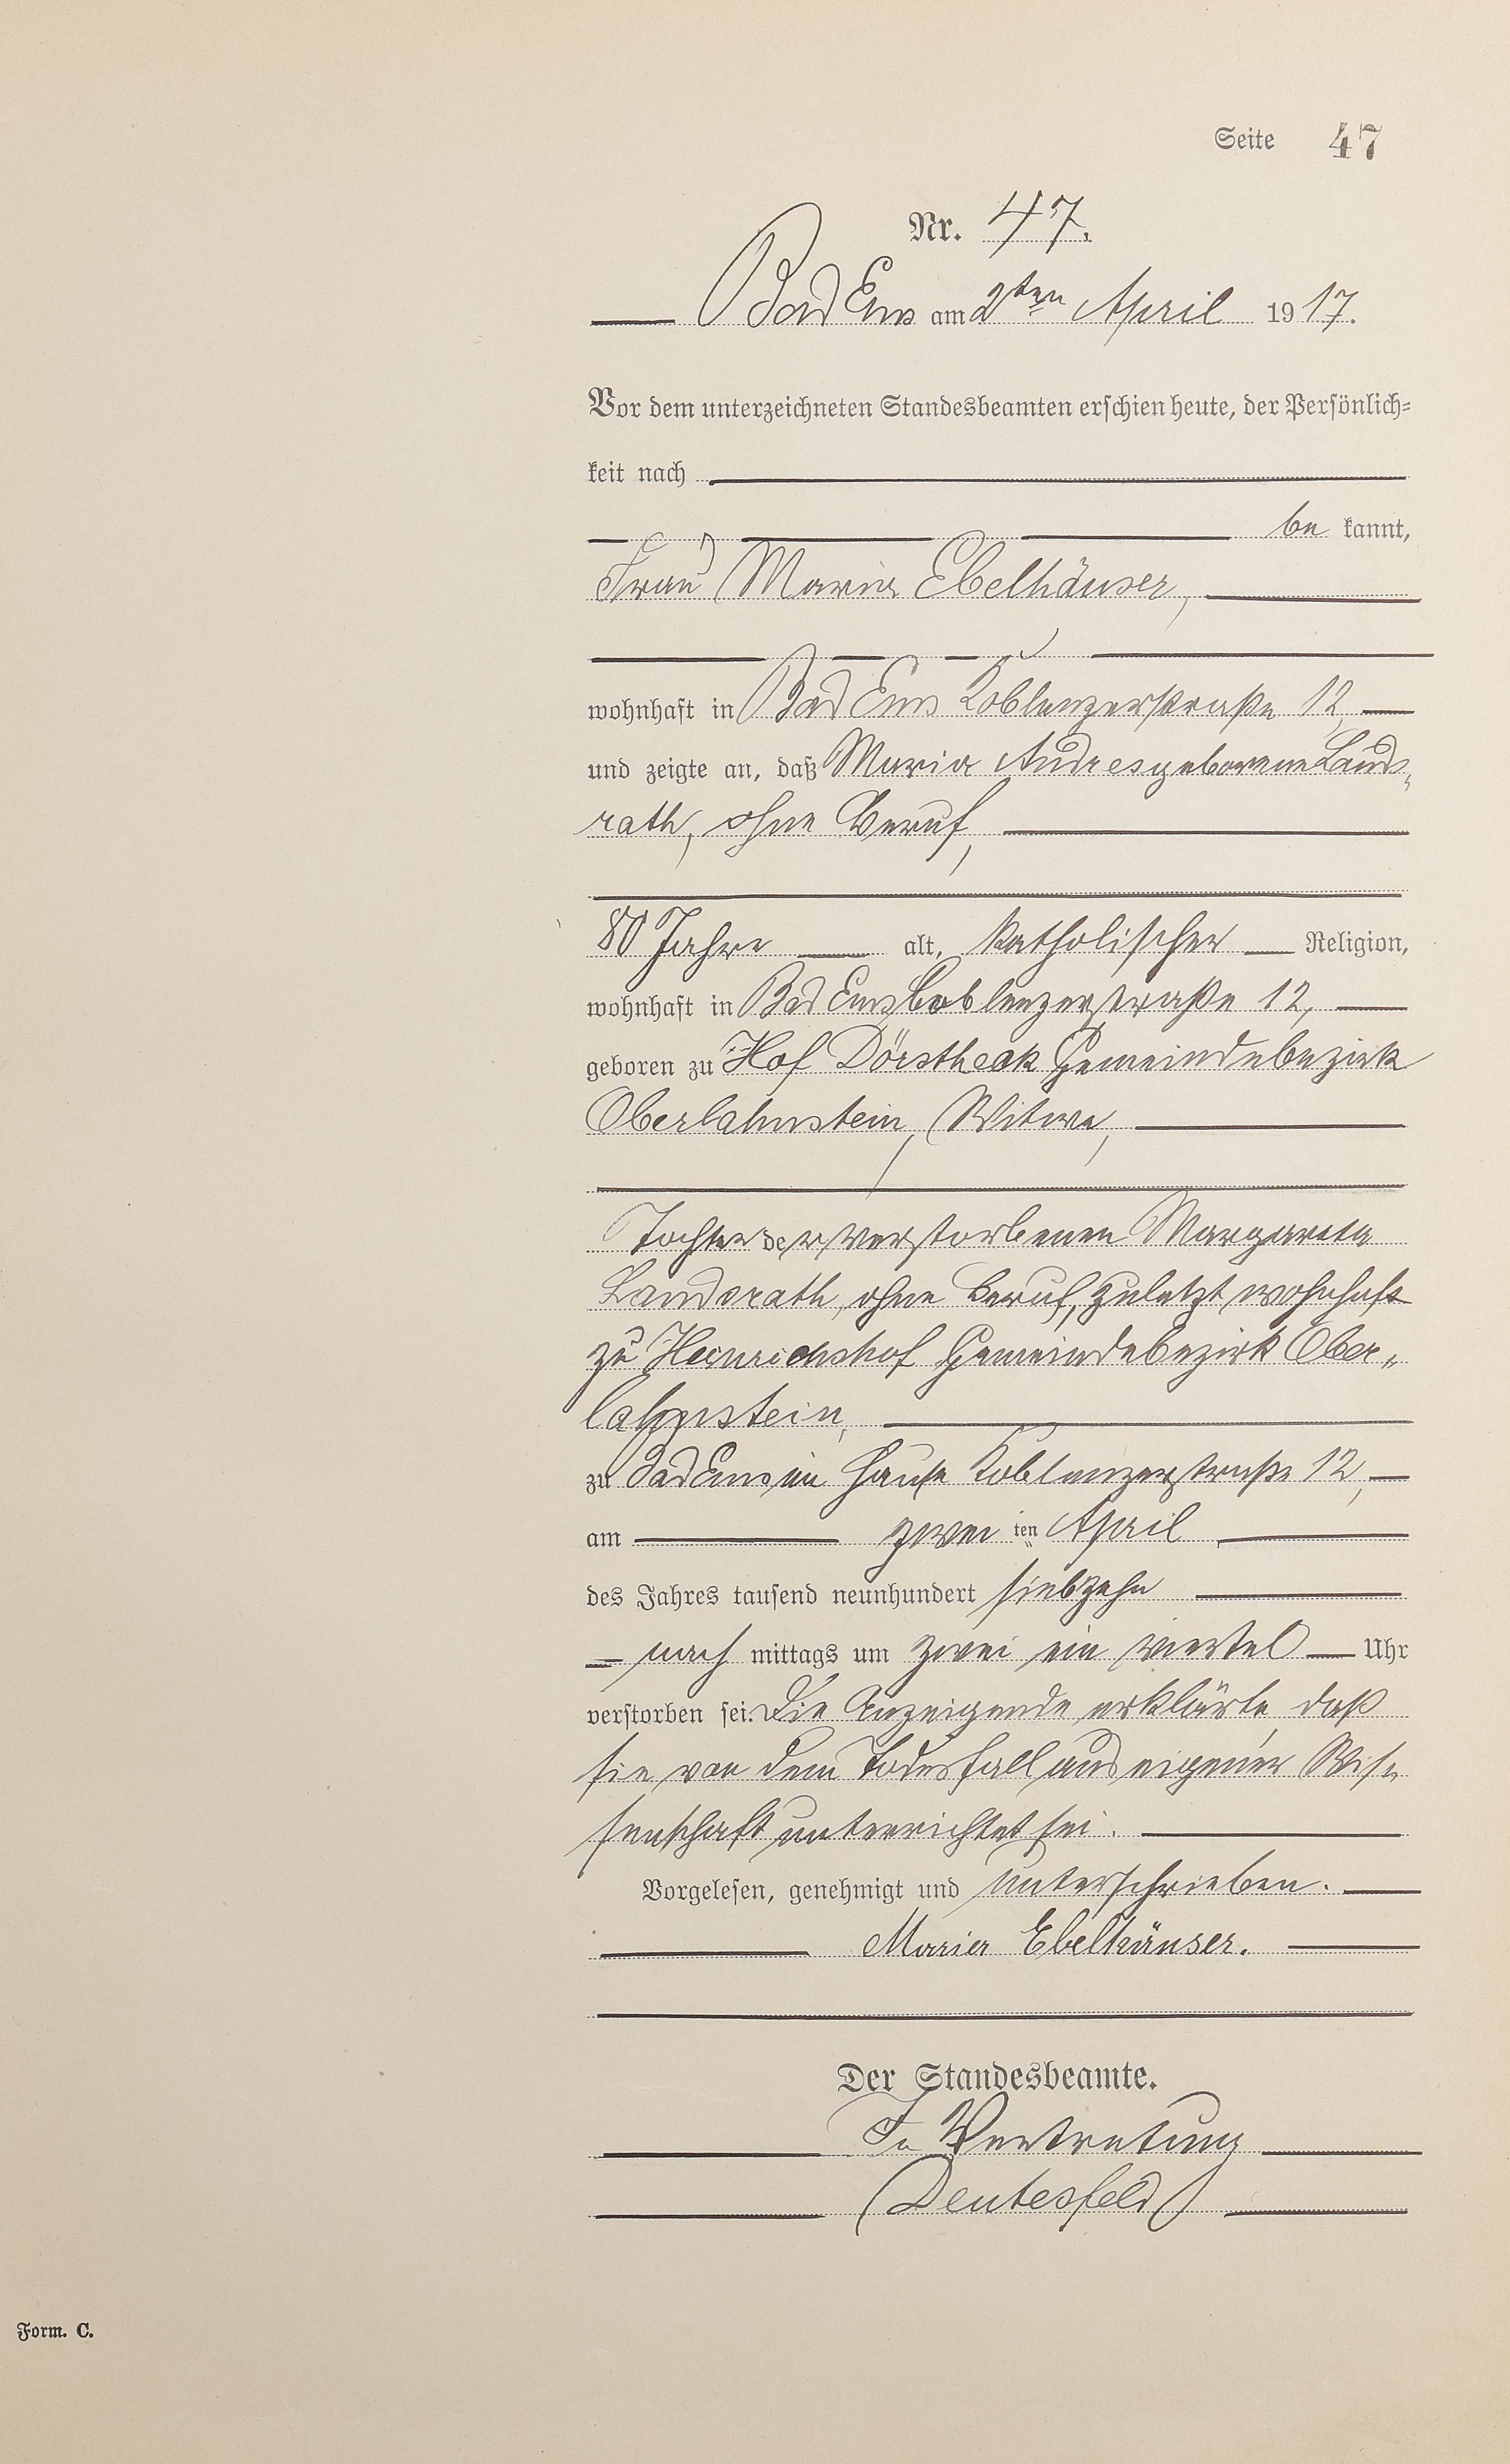 Seite 47
Nr. 47.
Bad Ems am 2ten April 1917.
Vor dem unterzeichneten Standesbeamten erschien heute, der Persönlich-
keit nach
be kannt,
Frau Maria Ebelhäuser,
wohnhaft in Bad Ems Koblenzerstraße 12,
und zeigte an, daß Maria Andres geborene Lands-
rath, ohne Beruf,
80 Jahre alt, katholischer Religion,
wohnhaft in Bad Ems Coblenzerstraße 12,
geboren zu Hof Dörstheck Gemeindebezirk
Oberlahnstein, Witwe,
Tochter der verstorbenen Margareta
Landsrath, ohne Beruf, zuletzt wohnhaft
zu Heinrichshof Gemeindebezirk Ober-
lahnstein,
zu Bad Ems im Hause Koblenzerstraße 12,
am zweiten April
des Jahres tausend neunhundert siebzehn
nach mittags um zwei ein viertel Uhr
verstorben sei. Die Anzeigende erklärte, daß
sie von dem Todesfall aus eigener Wis-
senschaft unterrichtet sei.
Vorgelesen, genehmigt und unterschrieben.
Maria Ebelhäuser.
Der Standesbeamte.
In Vertretung
Deutesfeld
Form. C.